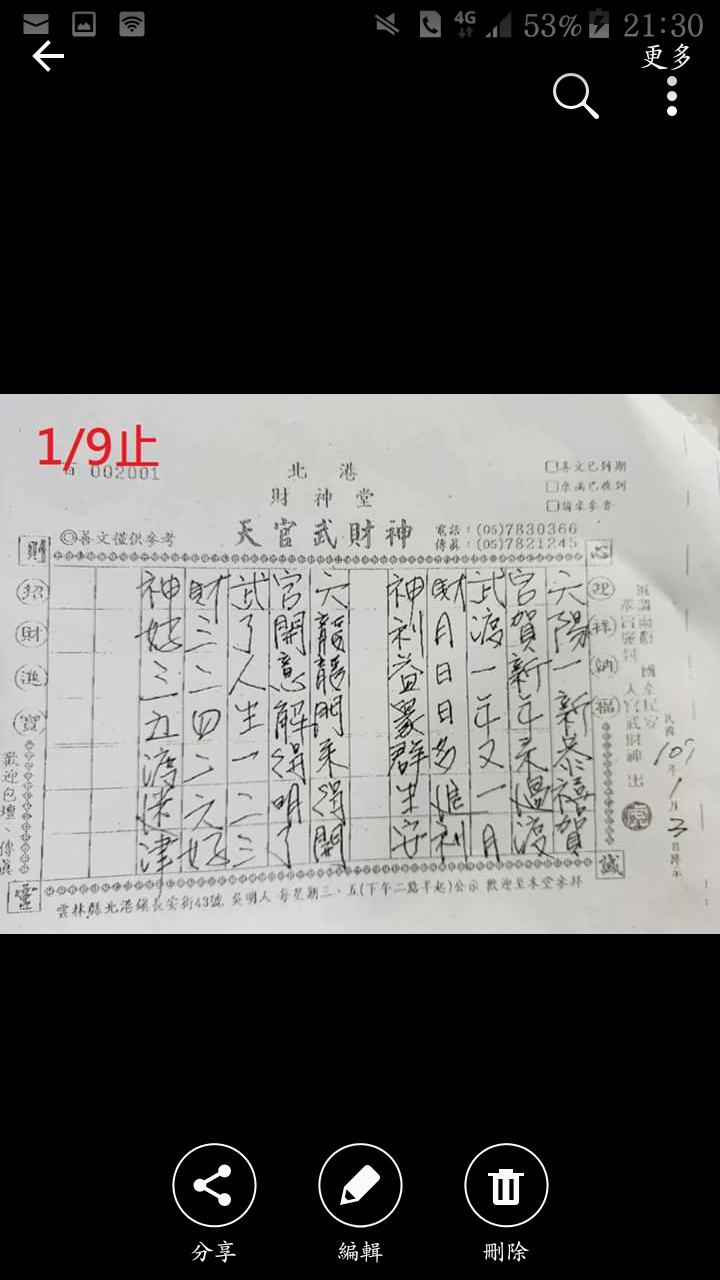 4G 53% 21:30
更多
1/9止
002001
北港
財神堂
天官武財神
◎善文僅供參考
電話：(05)7830366
傳真：(05)7821245
□善文已到期
財
招
財
進
寶
歡迎包壇、傳真
心
迎
祥
納
福
誠
靈
天官武財神 出
民國107年1月3日
六陽一新恭禧賀
宮賀新年來過渡
武渡一年又一月
財月日日多進利
神利益眾群生安
六龍龍門來得開
宮開意解得明了
武了人生一二三
財三二四二六好
神好三五渡迷津
雲林縣北港鎮長安街43號 吳明人 每星期三、五(下午二點半起)公示 歡迎至本堂參拜
分享
編輯
刪除